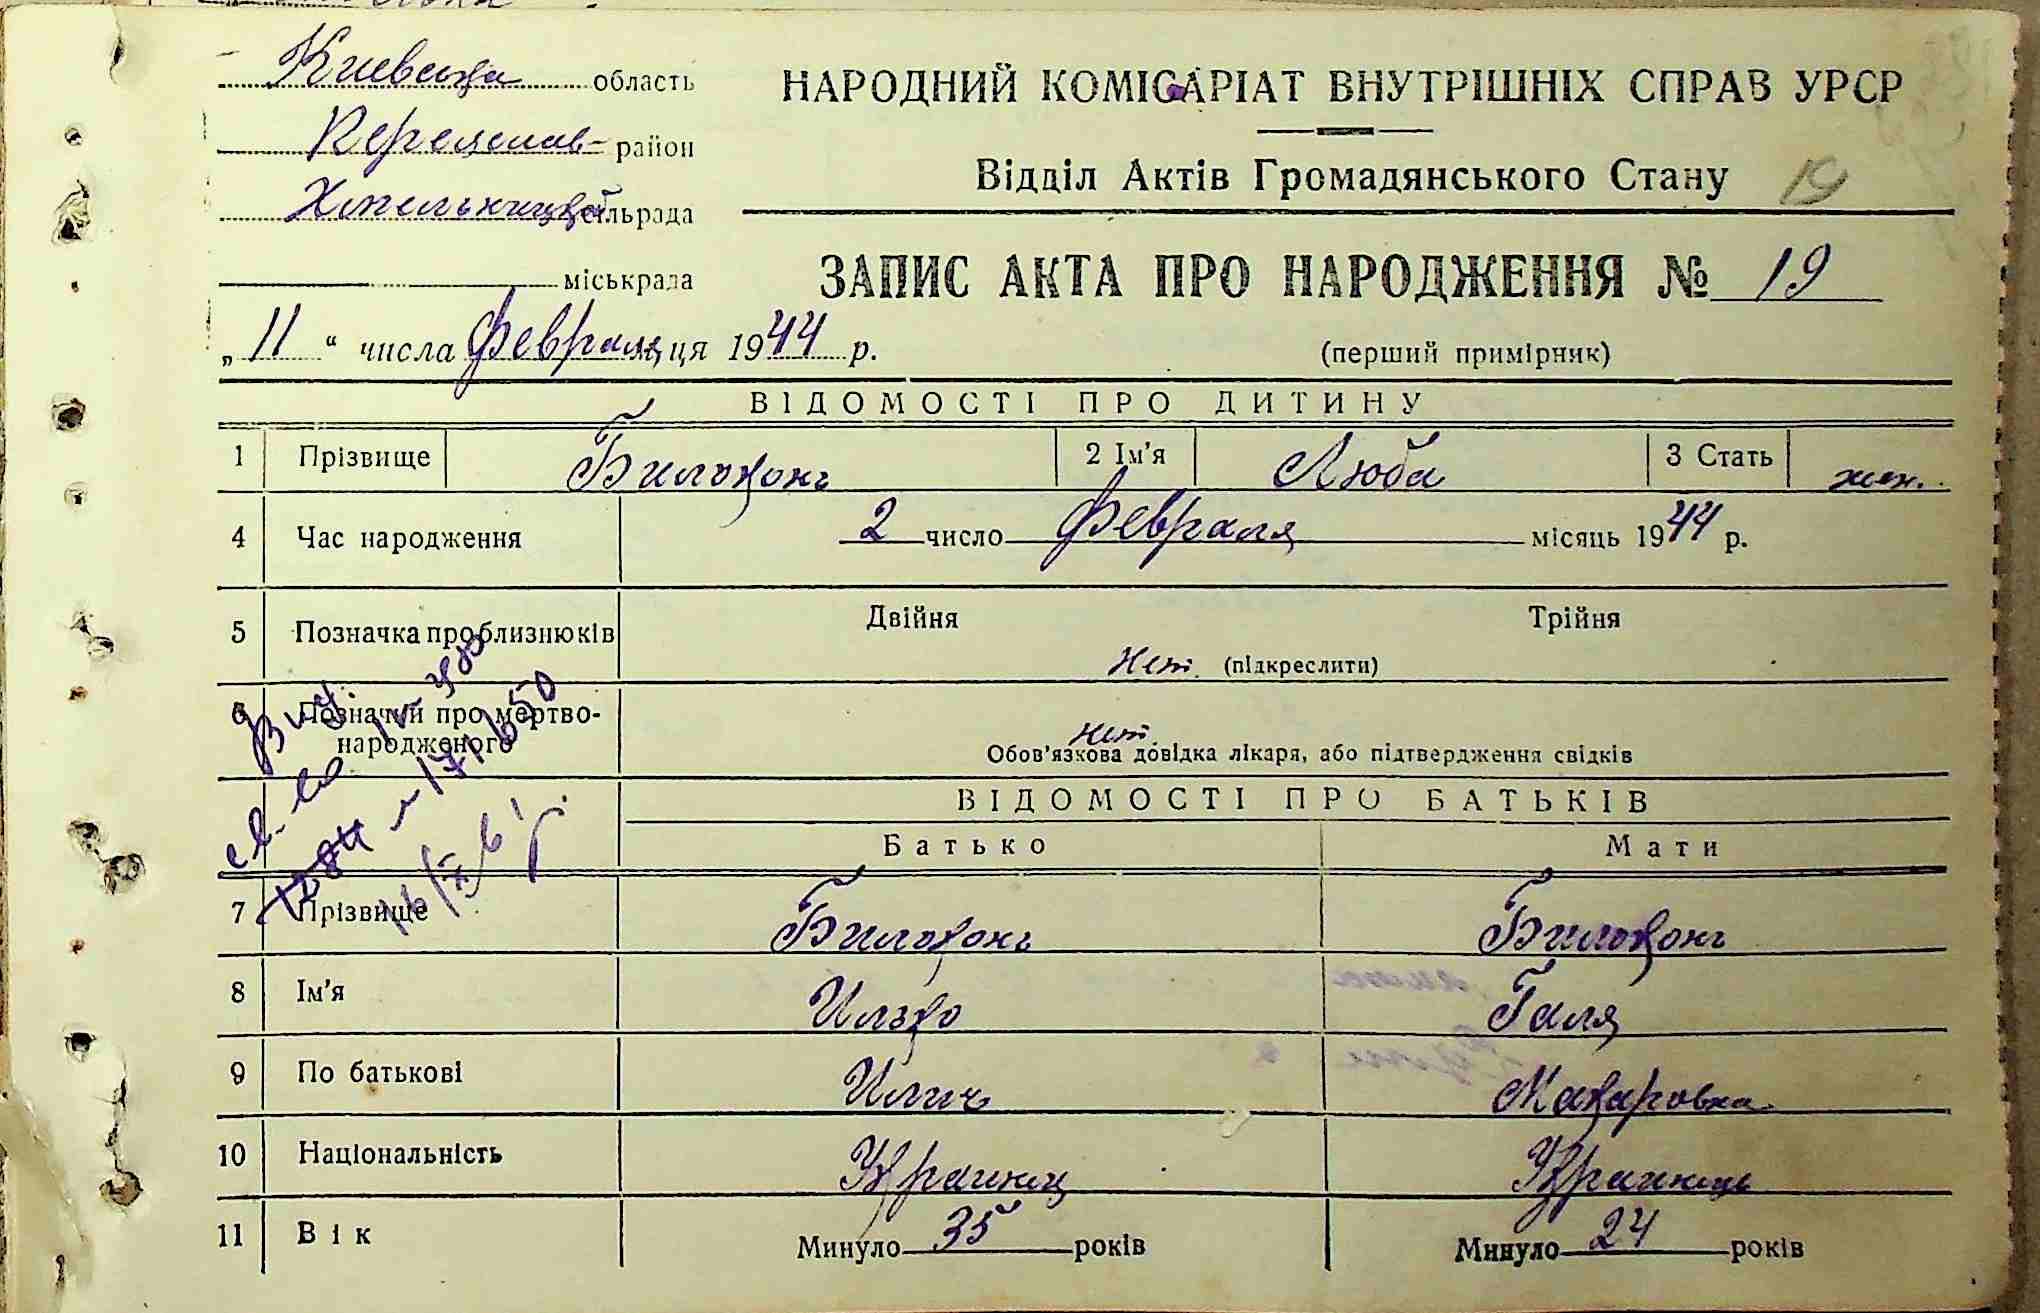 Киевська область
НАРОДНИЙ КОМІСАРІАТ ВНУТРІШНІХ СПРАВ УРСР
Переяслав- район
Відділ Актів Громадянського Стану 19
Хмельницкой сільрада
міськрада
ЗАПИС АКТА ПРО НАРОДЖЕННЯ № 19
„11“ числа Февраля ця 1944 р.
(перший примірник)
ВІДОМОСТІ ПРО ДИТИНУ
1 Прізвище Билоконь 2 Ім'я Люба 3 Стать жен.
4 Час народження 2 число Февраля місяць 1944 р.
5 Позначка про близнюків Двійня Трійня
Нет (підкреслити)
6 Позначки про мертво-
народженого Нет
Обов'язкова довідка лікаря, або підтвердження свідків
ВІДОМОСТІ ПРО БАТЬКІВ
Батько Мати
7 Прізвище Билоконь Билоконь
8 Ім'я Илько Галя
9 По батькові Илич Макаровна
10 Національність Украинец Украинець
11 Вік Минуло 35 років Минуло 24 років